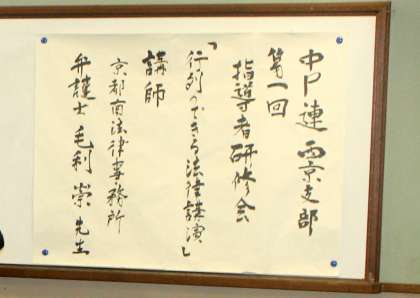 中P連 西京支部
第一回
指導者研修会
「行列のできる法律講演」
講師
京都南法律事務所
弁護士 毛利 崇 先生